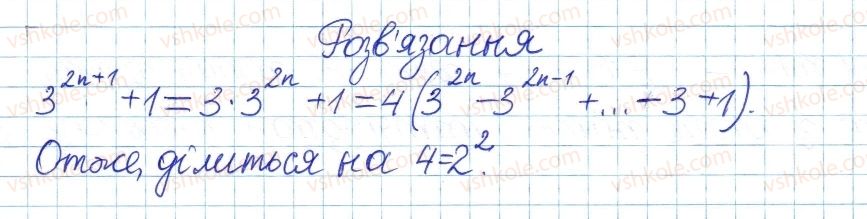 Розв'язання
3^{2n+1} + 1 = 3 · 3^{2n} + 1 = 4 (3^{2n} - 3^{2n-1} + ... - 3 + 1).
Отже, ділиться на 4 = 2^2.